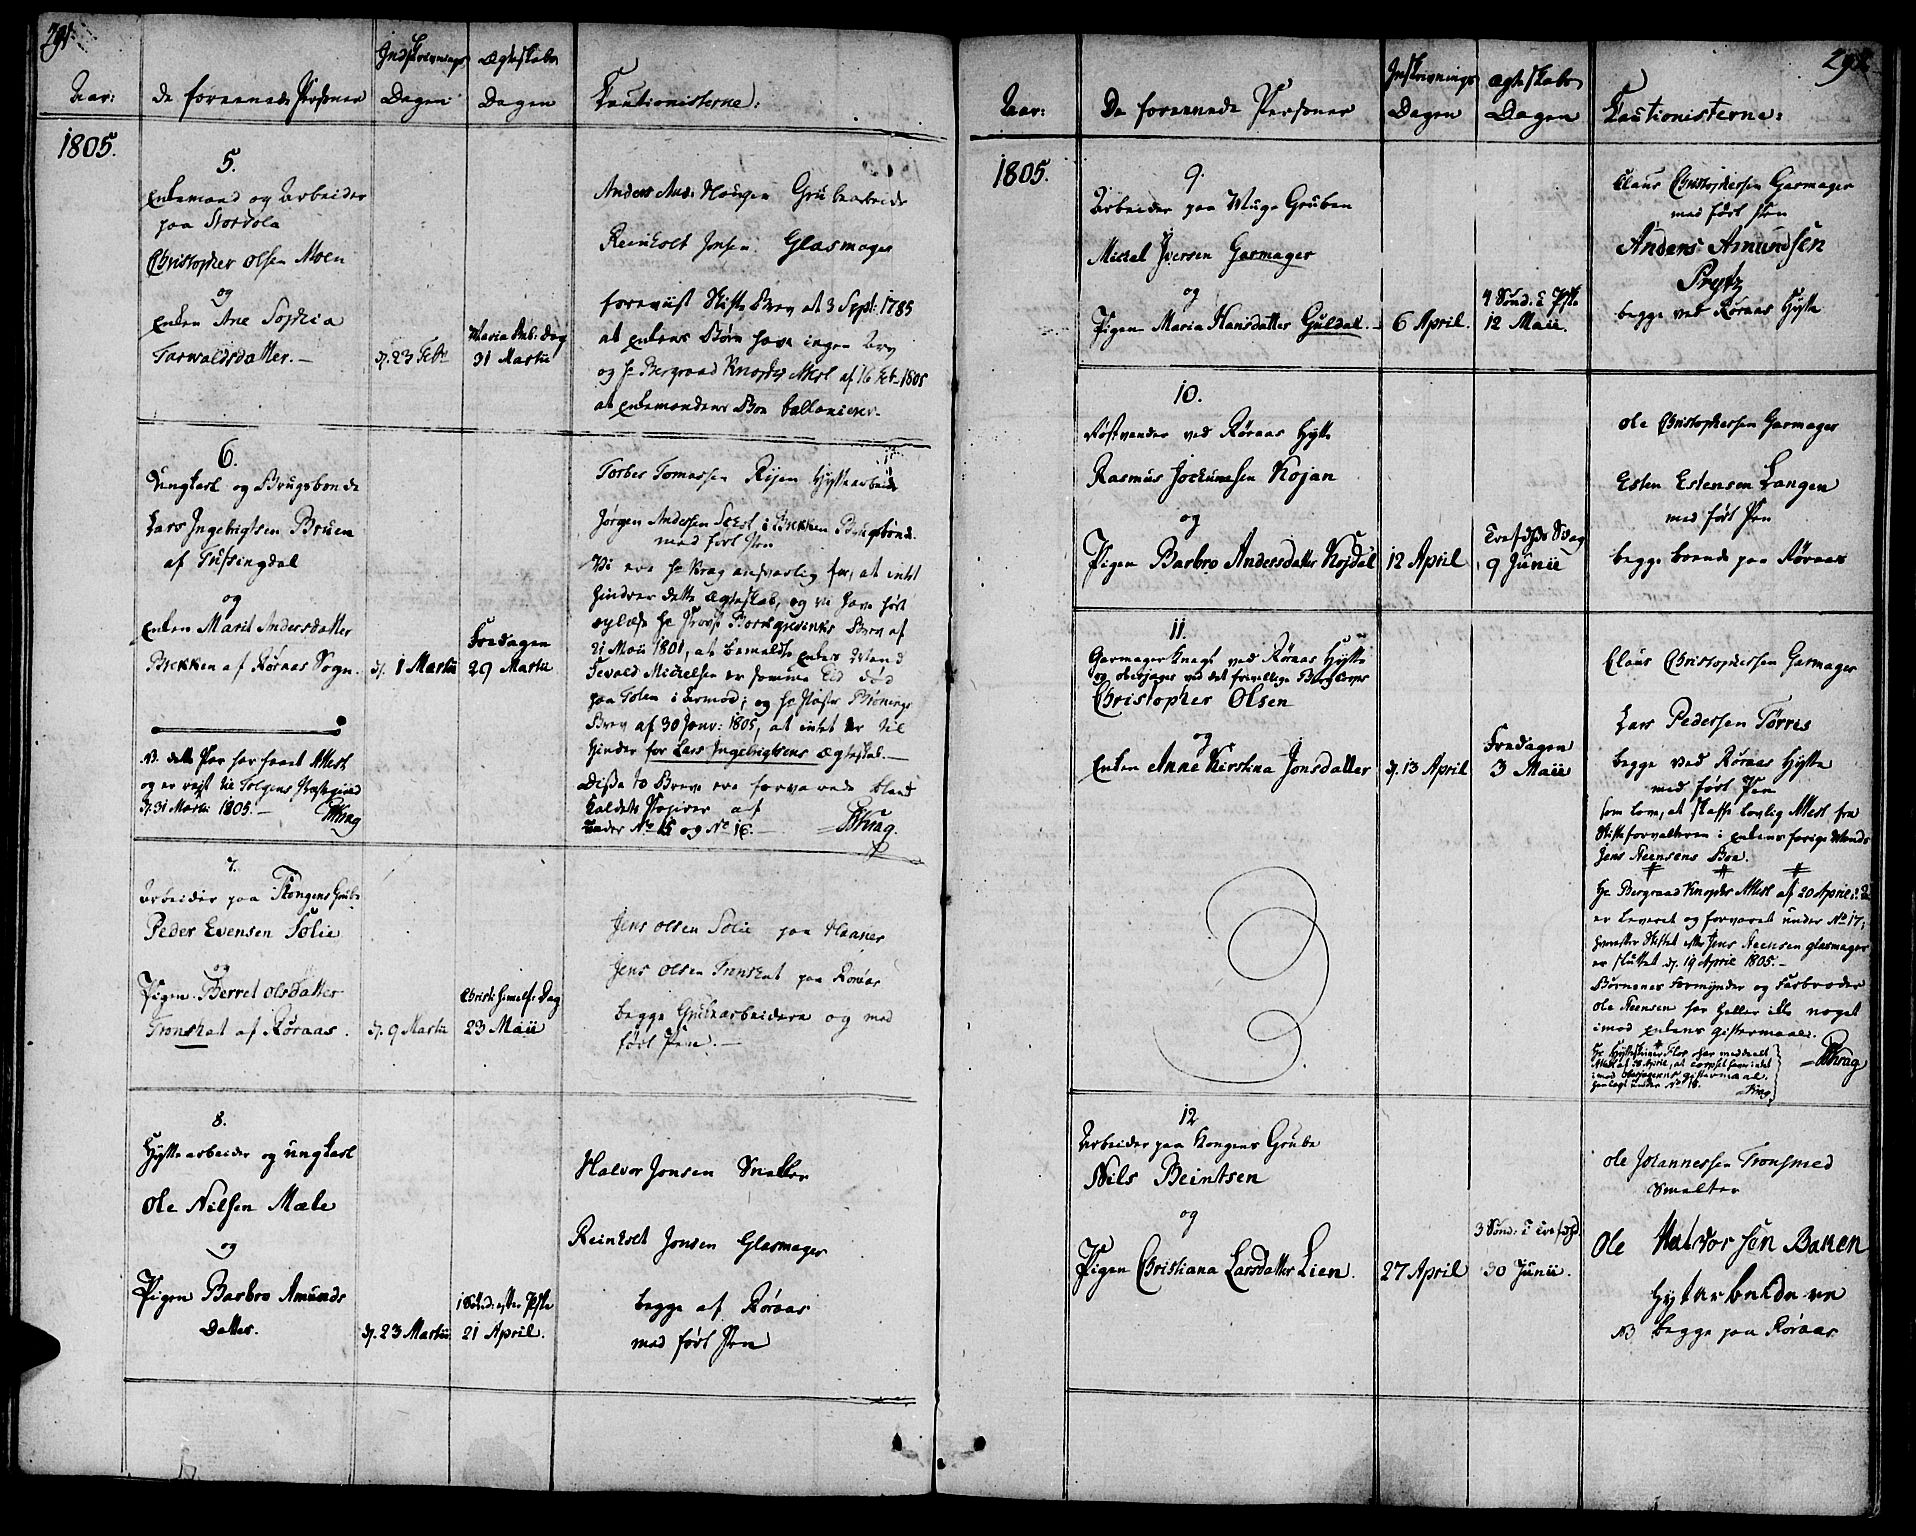 291.
Aar:
de foreenede Personer
Indskrivnings
Dagen
Ægteskabs
Dagen
Cautionisterne:
1805.
5.
Enkemand og Arbeider
paa Stordola
Christopher Olsen Moen
og
Enken Ane Sophia
Tarwaldsdatter. —
d. 23 Febr
Maria Bub: Dag
31 Martii
Anders And: Hougen Grubearbeider
Reinholt Jonsen Glasmager
foreviist Skifte Brev at 3 Sept: 1785
at Enkens Børn have ingen Arv
og Hr Bergraad Knophs Attest af 16 Feb. 1805
at Enkemandens Boe
6.
Ungkarl og Brugsbonde
Lars Ingebrigtsen Bruen
af Tufsingdal
og
Enken Marit Andersdatter
Bekken af Røraas Sogn.
d. 1 Martii
Fredagen
29 Martii
Torber Tomassen Rijen Hyttearbeider
Jørgen Andersen i Bekken Brugsbonde
med ført Pen
Vi ere Hr Krag ansvarlig for, at intet
hindrer dette Ægteskab, og vi have hørt
oplæse Hr Provst Brev af
21 Maii 1801, at bemeldte Enkes Mand
Tevald Mickelsen er samme Tid død
paa Tolen i ; og Hr Pastor Brønings
Brev af 30 Janv: 1805, at intet er til
hinder for Lars Ingebrigtsens Ægteskab. —
Disse to Breve ere forvarede bland
Kaldets Papirer af
under No 15 og No 16. —
PKrag.
NB. dette Par har faaet Attest
og er reist til Tolgens Præstegield
d. 31 Martii 1805. — PKrag
7.
Arbeider paa Kongens Grube
Peder Evensen Solie
og
Pigen Berret Olsdatter
Tronshat af Røraas.
d. 9 Martii
Christi Himelf: Dag
23 Maii
Jens Olsen Solie paa Haaner
Jens Olsen Tronshat paa Røraas
begge Grubearbeidere og med
ført Pen. —
8.
Hyttearbeider og ungkarl
Ole Nilsen Mæle
og
Pigen Barbro Amunds
Datter.
d. 23 Martii
1 Sønd: efter Pske
21 April.
Halvor Jonsen Smelter
Reinholt Jonsen Glasmager
begge af Røraas
med ført Pen
292
Aar:
De foreenede Personer
Inskrivnings
Dagen
Ægteskabs
Dagen
Cautionisterne:
1805.
9.
Arbeider paa Muge Gruben
Mickel Iversen Garmager
og
Pigen Maria Hansdatter Guldal. —
6 April.
4 Sønd: E Pske
12 Maii
Claus Christophersen Garmager
med ført Pen
Anders Amundsen
Prytz
begge ved Røraas Hytte
10.
Røstvender ved Røraas Hytte
Rasmus Jochumsen Kojan
og
Pigen Barbro Andersdatter Kojdal
12 April
Trefdhs Sdag
9 Junii
Ole Christophersen Garmager
Esten Estensen Langen
med ført Pen
begge boende paa Røraas
11.
Garmager Knægt ved Røraas Hytte
og oberjæger ved det frivillige Berg Corps
Christopher Olsen
og
Enken Anne Kirstina Jonsdatter
d. 13 April
Fredagen
3 Maii
Claus Christophersen Garmager
Lars Pedersen Torris
begge ved Røraas Hytte
med ført Pen
som love, at skaffe lovlig Attest fra
Skifteforvalteren i Enkens forige Mands
Jens Steensens Boe.
Hr Bergraad Knophs Attest af 20 April:
er leveret og forvaret under No 17,
hvorefter Skiftet efter Jens Steensen glasmager
er sluttet d. 19 April 1805. —
Børnenes Formynder og Farbroder
Ole Steensen har heller ikke noget
imod Enkens giftermaal.
PKrag
Hr Hytteskriver Floor har meddeelt
Attest af 30 April, at Corpset har intet
imod Oberjægerens giftermaal.
henlagt under No 18.
Krag
12
Arbeider paa Kongens Grube
Nils Beintsen
og
Pigen Christiana Larsdatter Lien.
27 April
3 Sønd: E Trefdhd.
30 Junii.
Ole Johannessen Tronsmed
Smelter
Ole Halvorsen Bauen
Hytarbeidere
NB begge paa Røraas